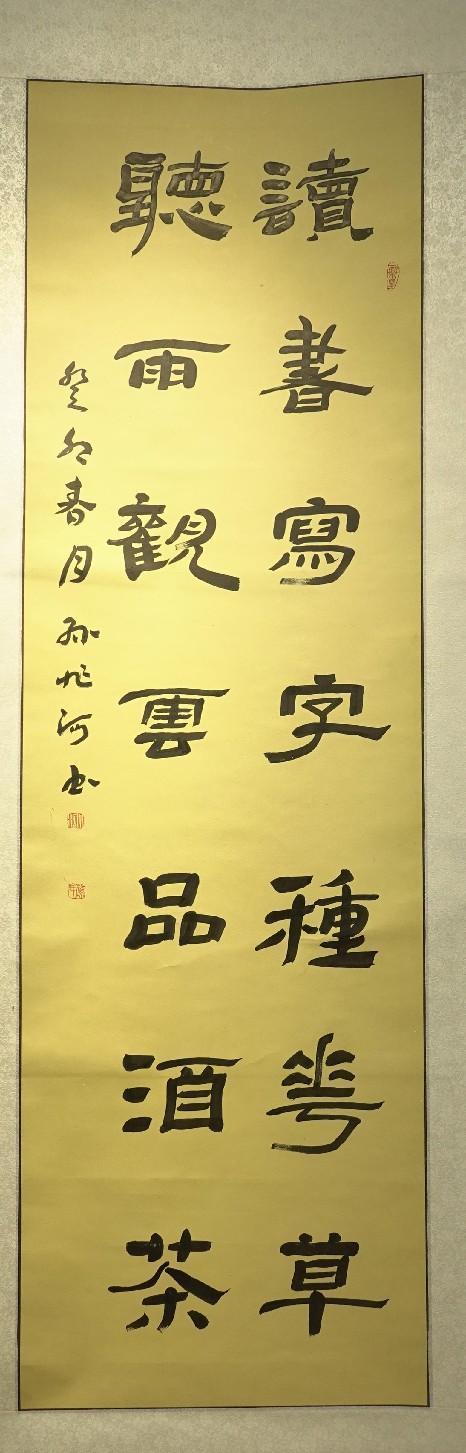 讀書寫字種花草
聽雨觀雲品酒茶
癸卯春月孫作河書